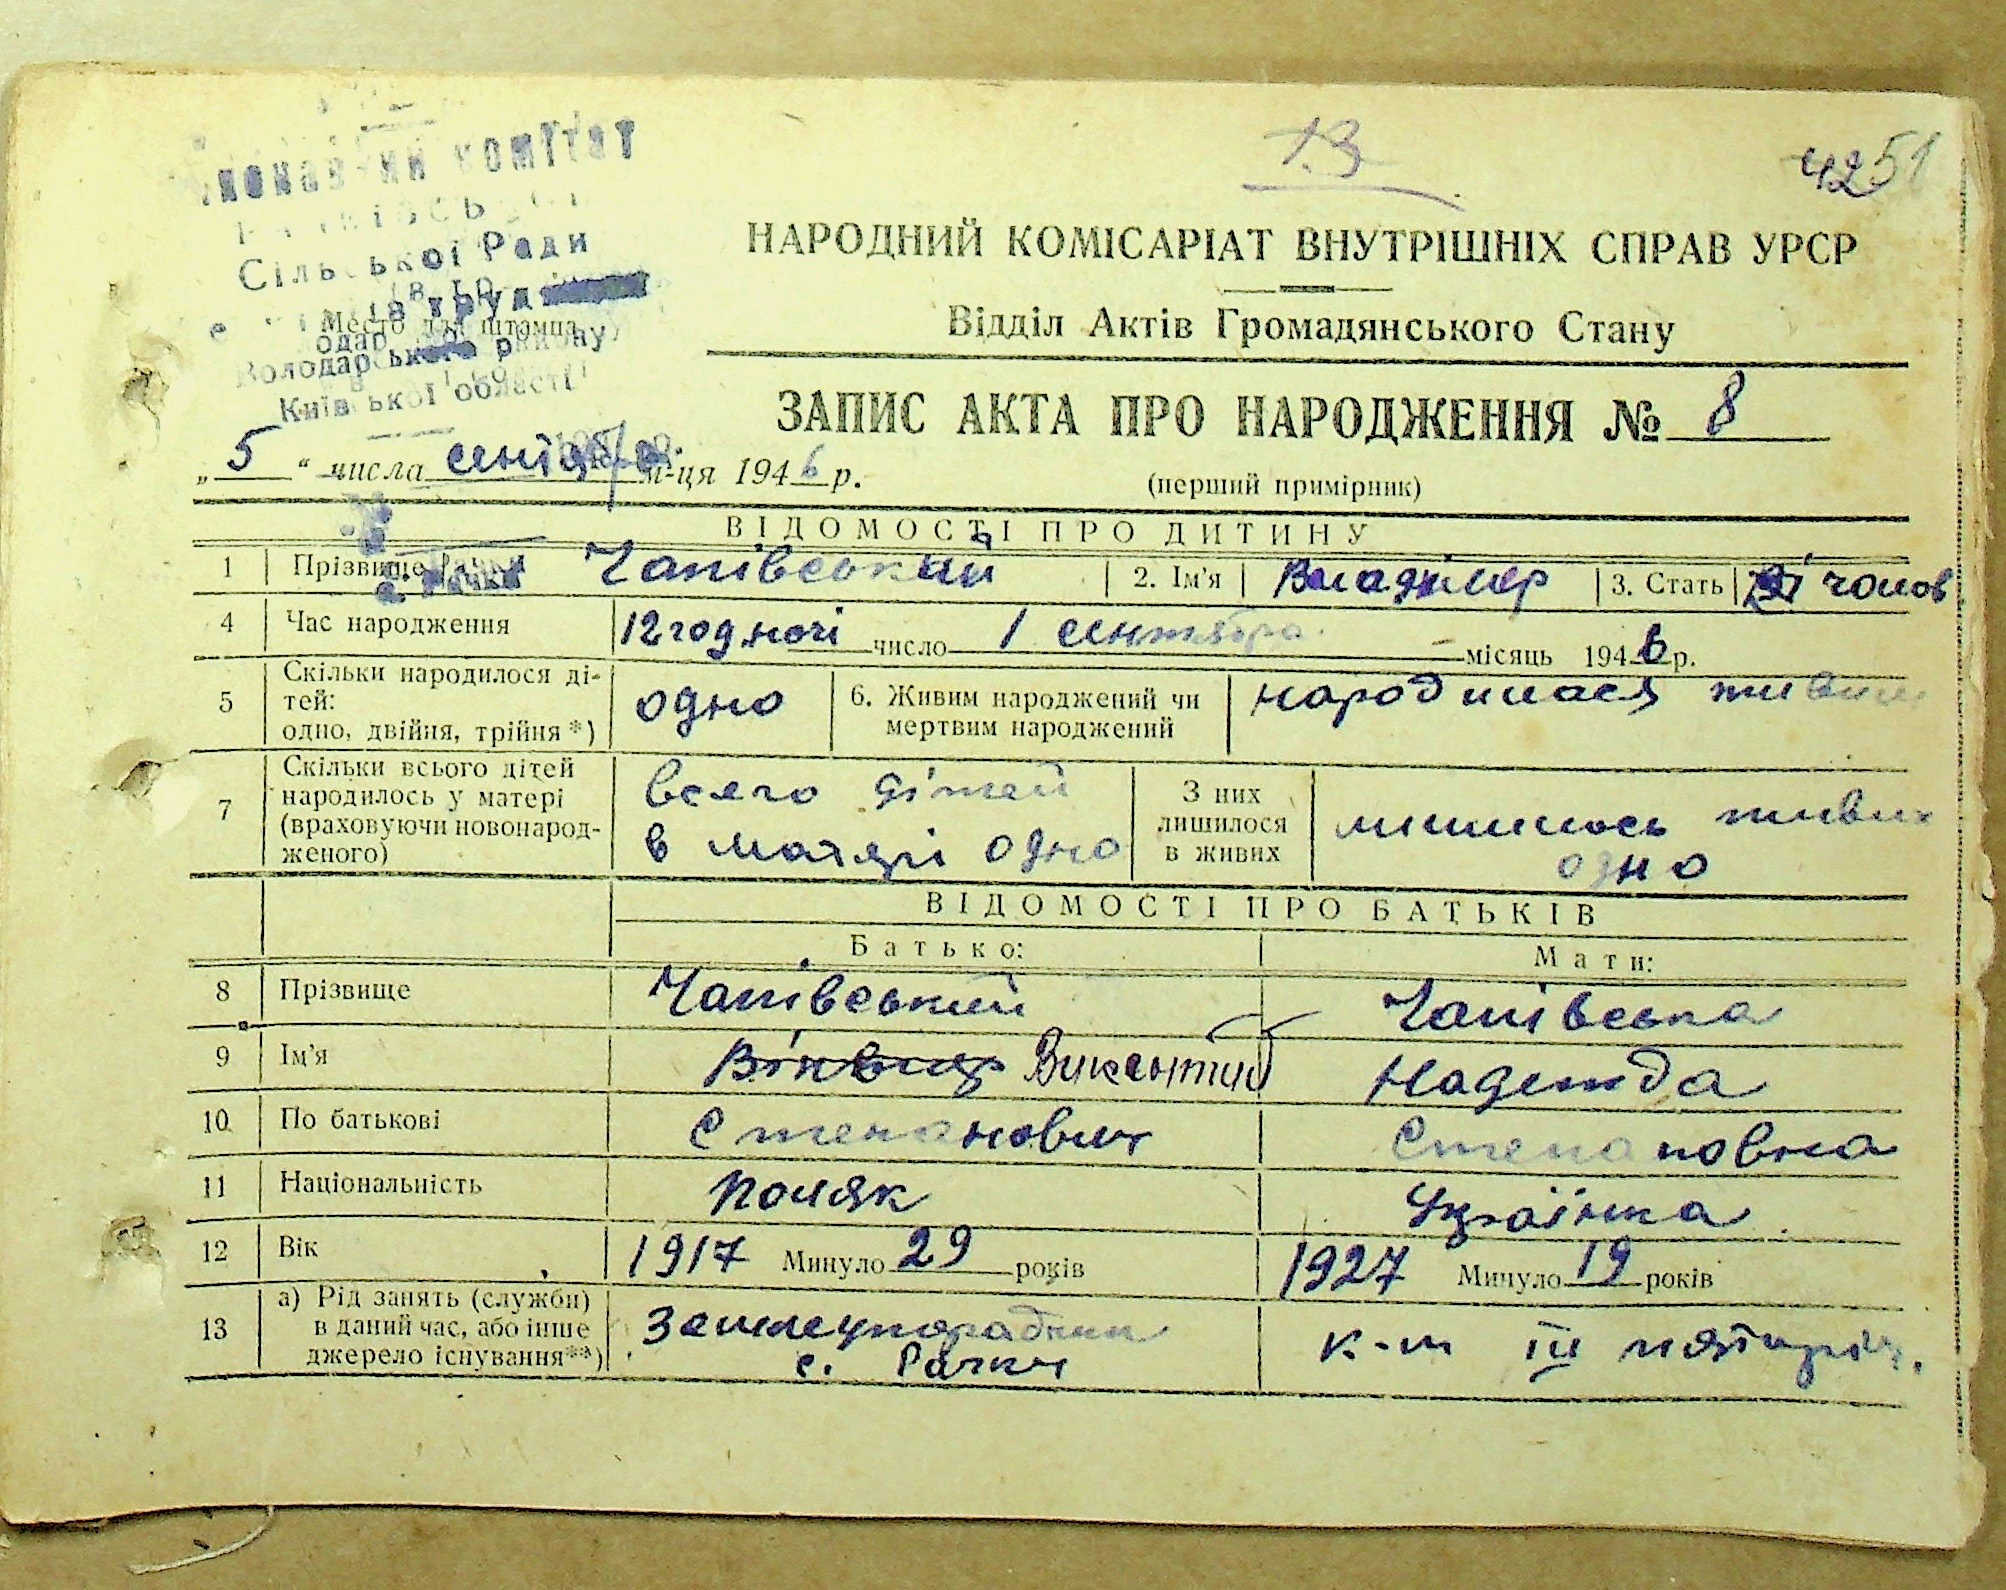 комітет
Сільської Ради
Место для штампа
Володарського району
Київської області
13
42 51
НАРОДНИЙ КОМІСАРІАТ ВНУТРІШНІХ СПРАВ УРСР
Відділ Актів Громадянського Стану
ЗАПИС АКТА ПРО НАРОДЖЕННЯ № 8
„ 5 “ числа сентября м-ця 1946 р.
(перший примірник)
ВІДОМОСТІ ПРО ДИТИНУ
1 Прізвище Чапівський 2. Ім'я Владімер 3. Стать чолов
4 Час народження 12 год ночі число 1 сентября місяць 1946 р.
5 Скільки народилося ді-
тей:
одно, двійня, трійня *) одно 6. Живим народжений чи
мертвим народжений народилася живим
7 Скільки всього дітей
народилось у матері
(враховуючи новонарод-
женого) всего дітей
в матері одно З них
лишилося
в живих лишилось живих
одно
ВІДОМОСТІ ПРО БАТЬКІВ
Батько: Мати:
8 Прізвище Чапівський Чапівська
9 Ім'я Викентий Надежда
10 По батькові Степанович Степановна
11 Національність поляк Українка
12 Вік 1917 Минуло 29 років 1927 Минуло 19 років
13 а) Рід занять (служби)
в даний час, або інше
джерело існування**)
с. Рачки к-п III пятиріч.